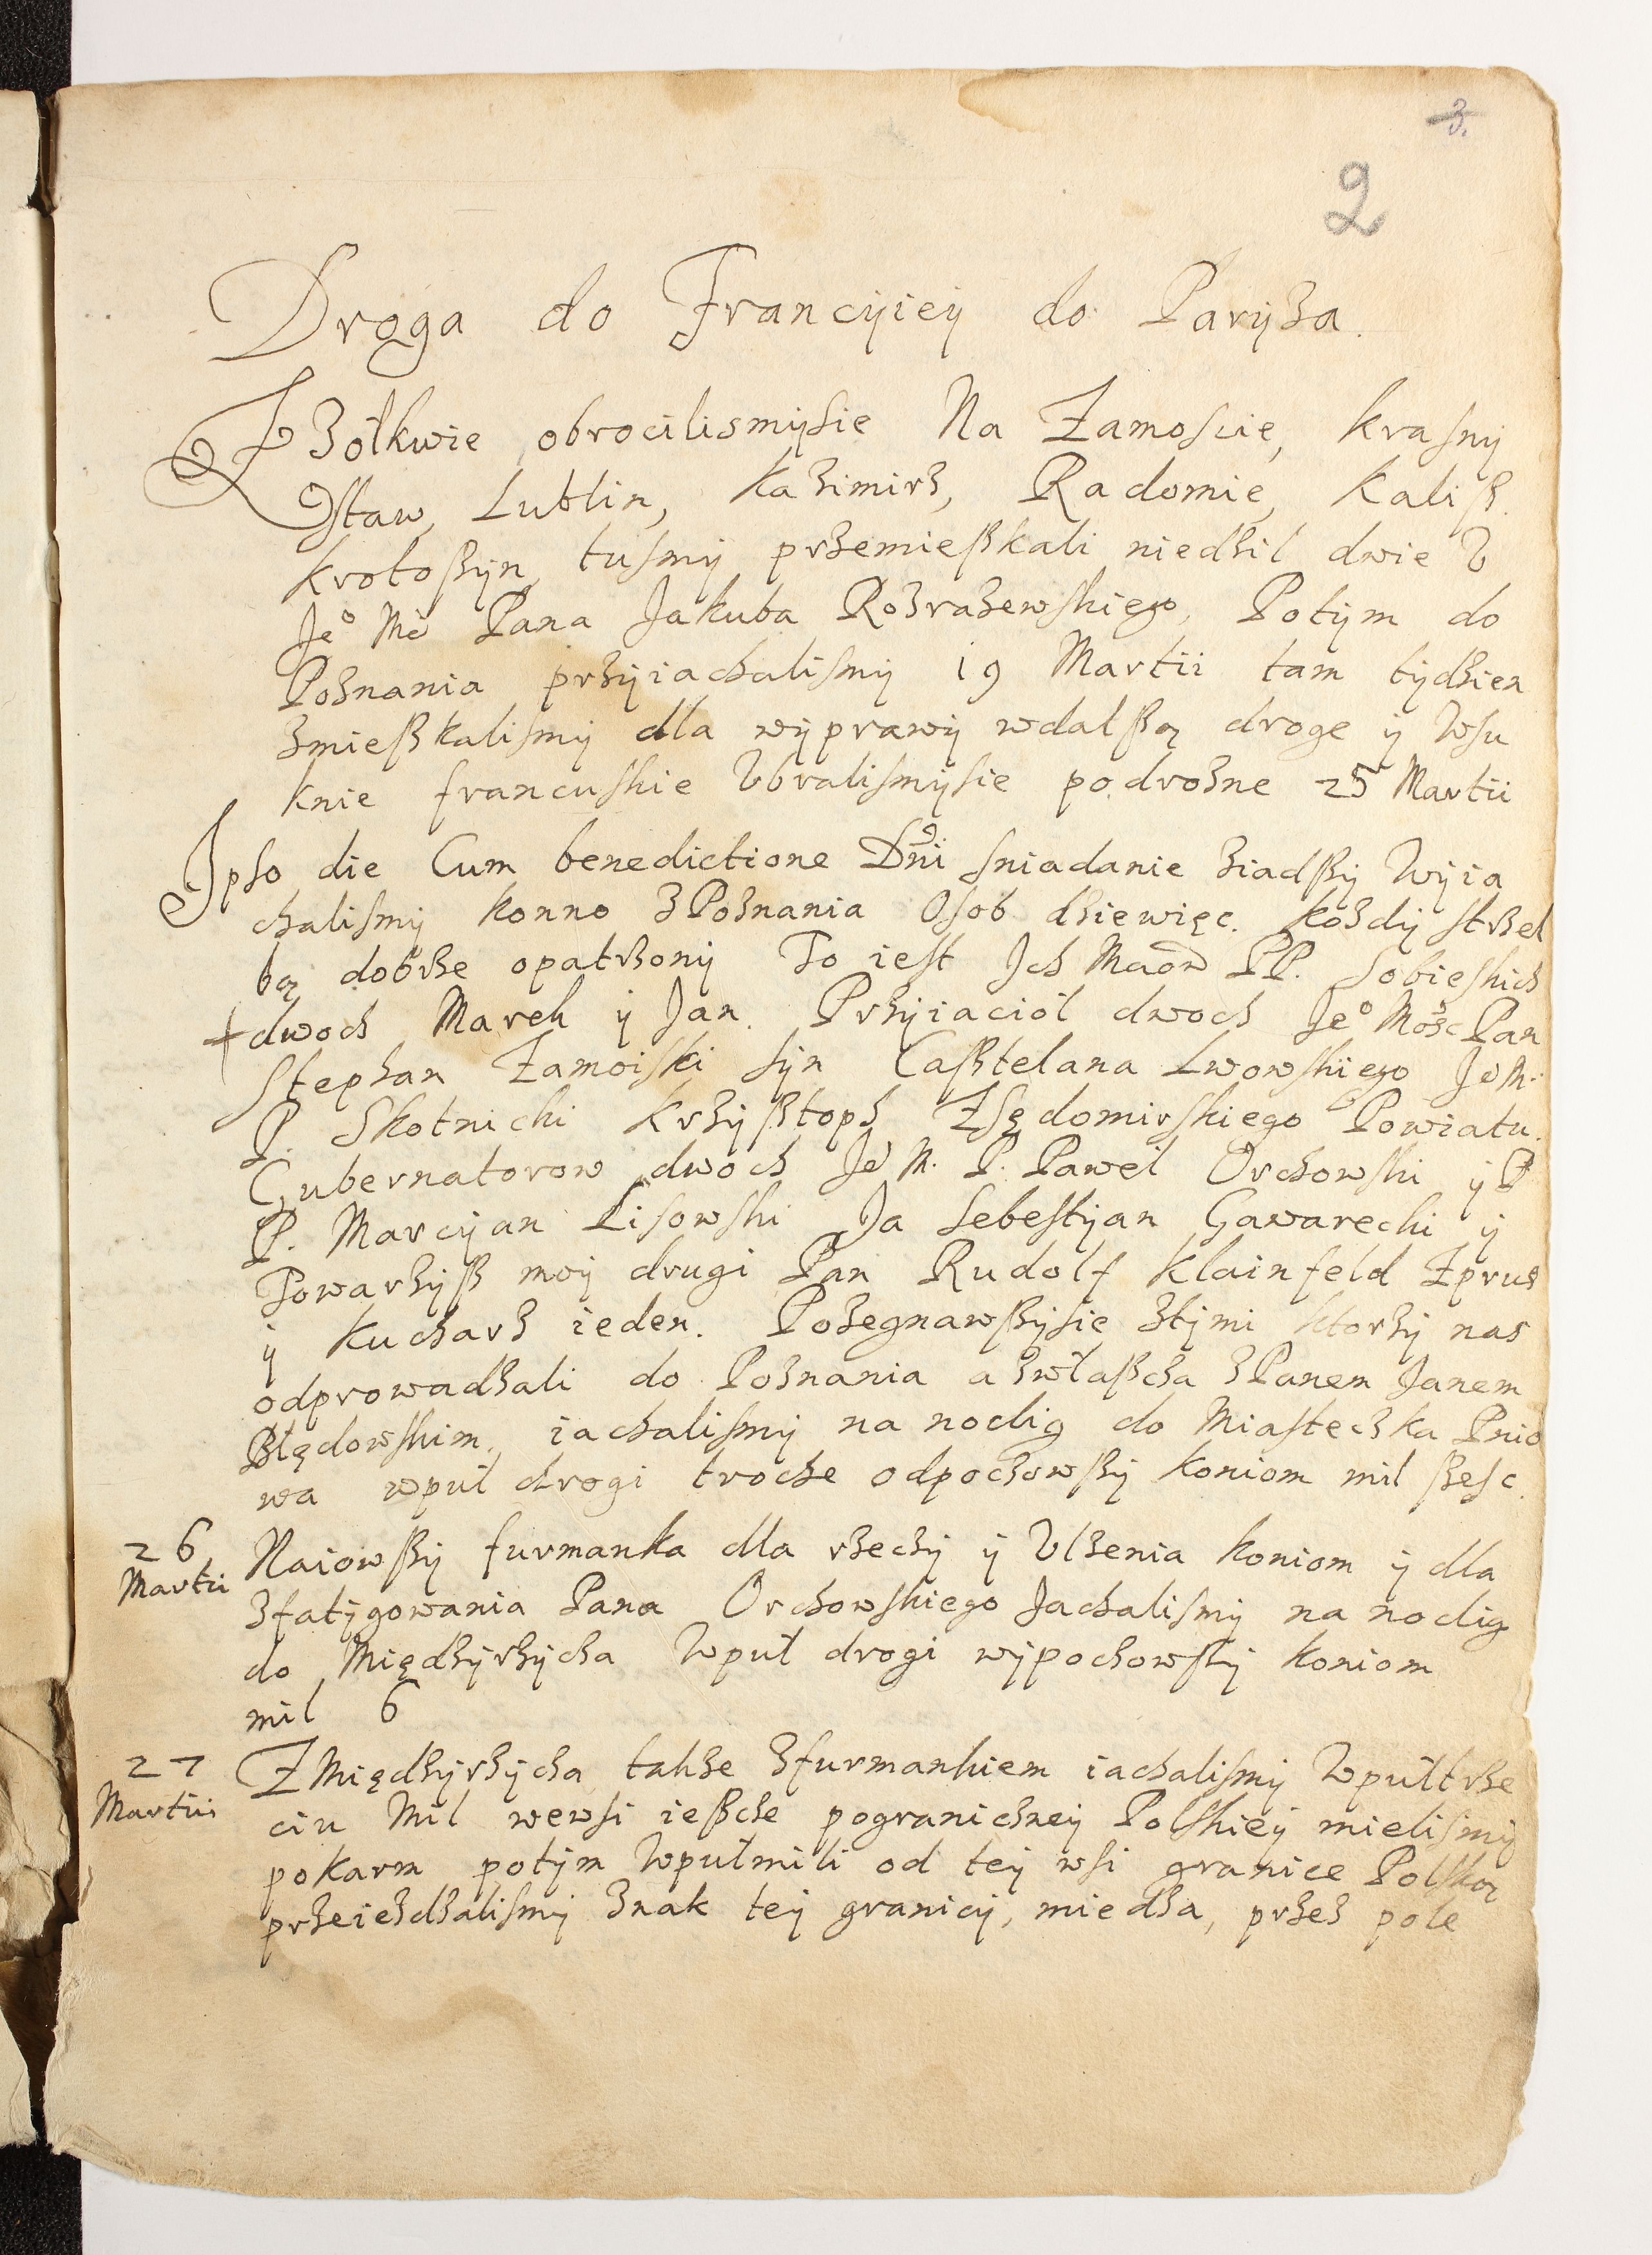 3.
2
Droga do Francyiey do Paryza.
Z Zołkwie obrocilismysie Na Zamoscie, krasny
Staw, Lublin, kazimirz, Radomie, kalisz.
krotoszyn, tusmy przemieszkali niedzil dwie V
Jeo Mci Pana Jakuba Rozrazewskiego, Potym do
Poznania przyiachalismy 19 Martii tam tydzien
zmieszkalismy dla wyprawy wdalszą droge y Wsu
knie francuskie Vbralismysie podrozne 25 Martii
Ipso die Cum benedictione Dni sniadanie ziadszy Wyia
chalismy konno z Poznania Osob dziewięc. kozdy strzel
bą dobrze opatrzony To iest Ich Mciow PP. Sobieskich
+ dwoch Marek y Jan. Przyiacioł dwoch Jeo Mosc Pan
Stephan Zamoiski Syn Casztelana Lwowskiego Je M.
P. Skotnicki krzysztoph Z Sędomirskiego Powiatu.
Gubernatorow dwoch Je M. P. Paweł Orchowski y P
P. Marcyan Lisowski Ja Sebestyan Gawarecki y
Towarzysz moy drugi Pan Rudolf klainfeld Zprus
y kucharz ieden. Pozegnawszysie ztymi ktorzy nas
odprowadzali do Poznania a zwłaszcza z Panem Janem
Błędowskim, iachalismy na noclig do Miasteczka Pnio
wa wpuł drogi troche odpochowszy koniom mil szesc.
26 Martii Naiowszy furmanka dla rzeczy y Vlzenia koniom y dla
zfatygowania Pana Orchowskiego Jachalismy na noclig
do Międzyrzycza Wpuł drogi wypochowszy koniom
mil 6
27 Martii Z Międzyrzycza takze zfurmankiem iachalismy Wpułtrze
ciu Mil wewsi ieszcze pograniczney Polskiey mielismy
pokarm potym Wpułmili od tey wsi granice Polską
przeiezdzalismy znak tey granicy, miedza, przez pole